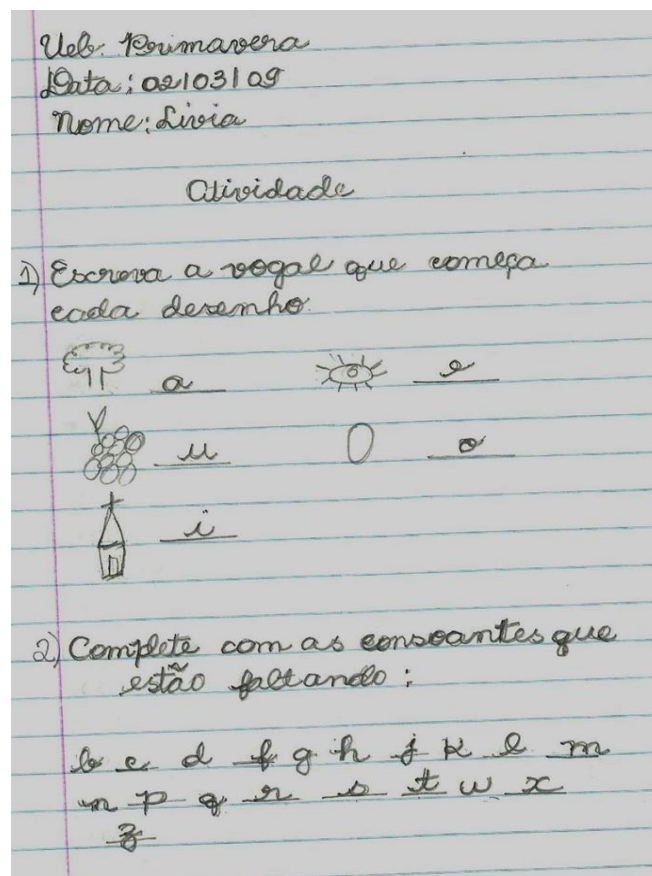 Ueb. Primavera
Data: 02/03/09
Nome: Livia
Atividade
1) Escreva a vogal que começa
cada desenho.
a e
u o
i
2) Complete com as consoantes que
estão faltando:
b c d f g h j k l m
n p q r s t w x
z